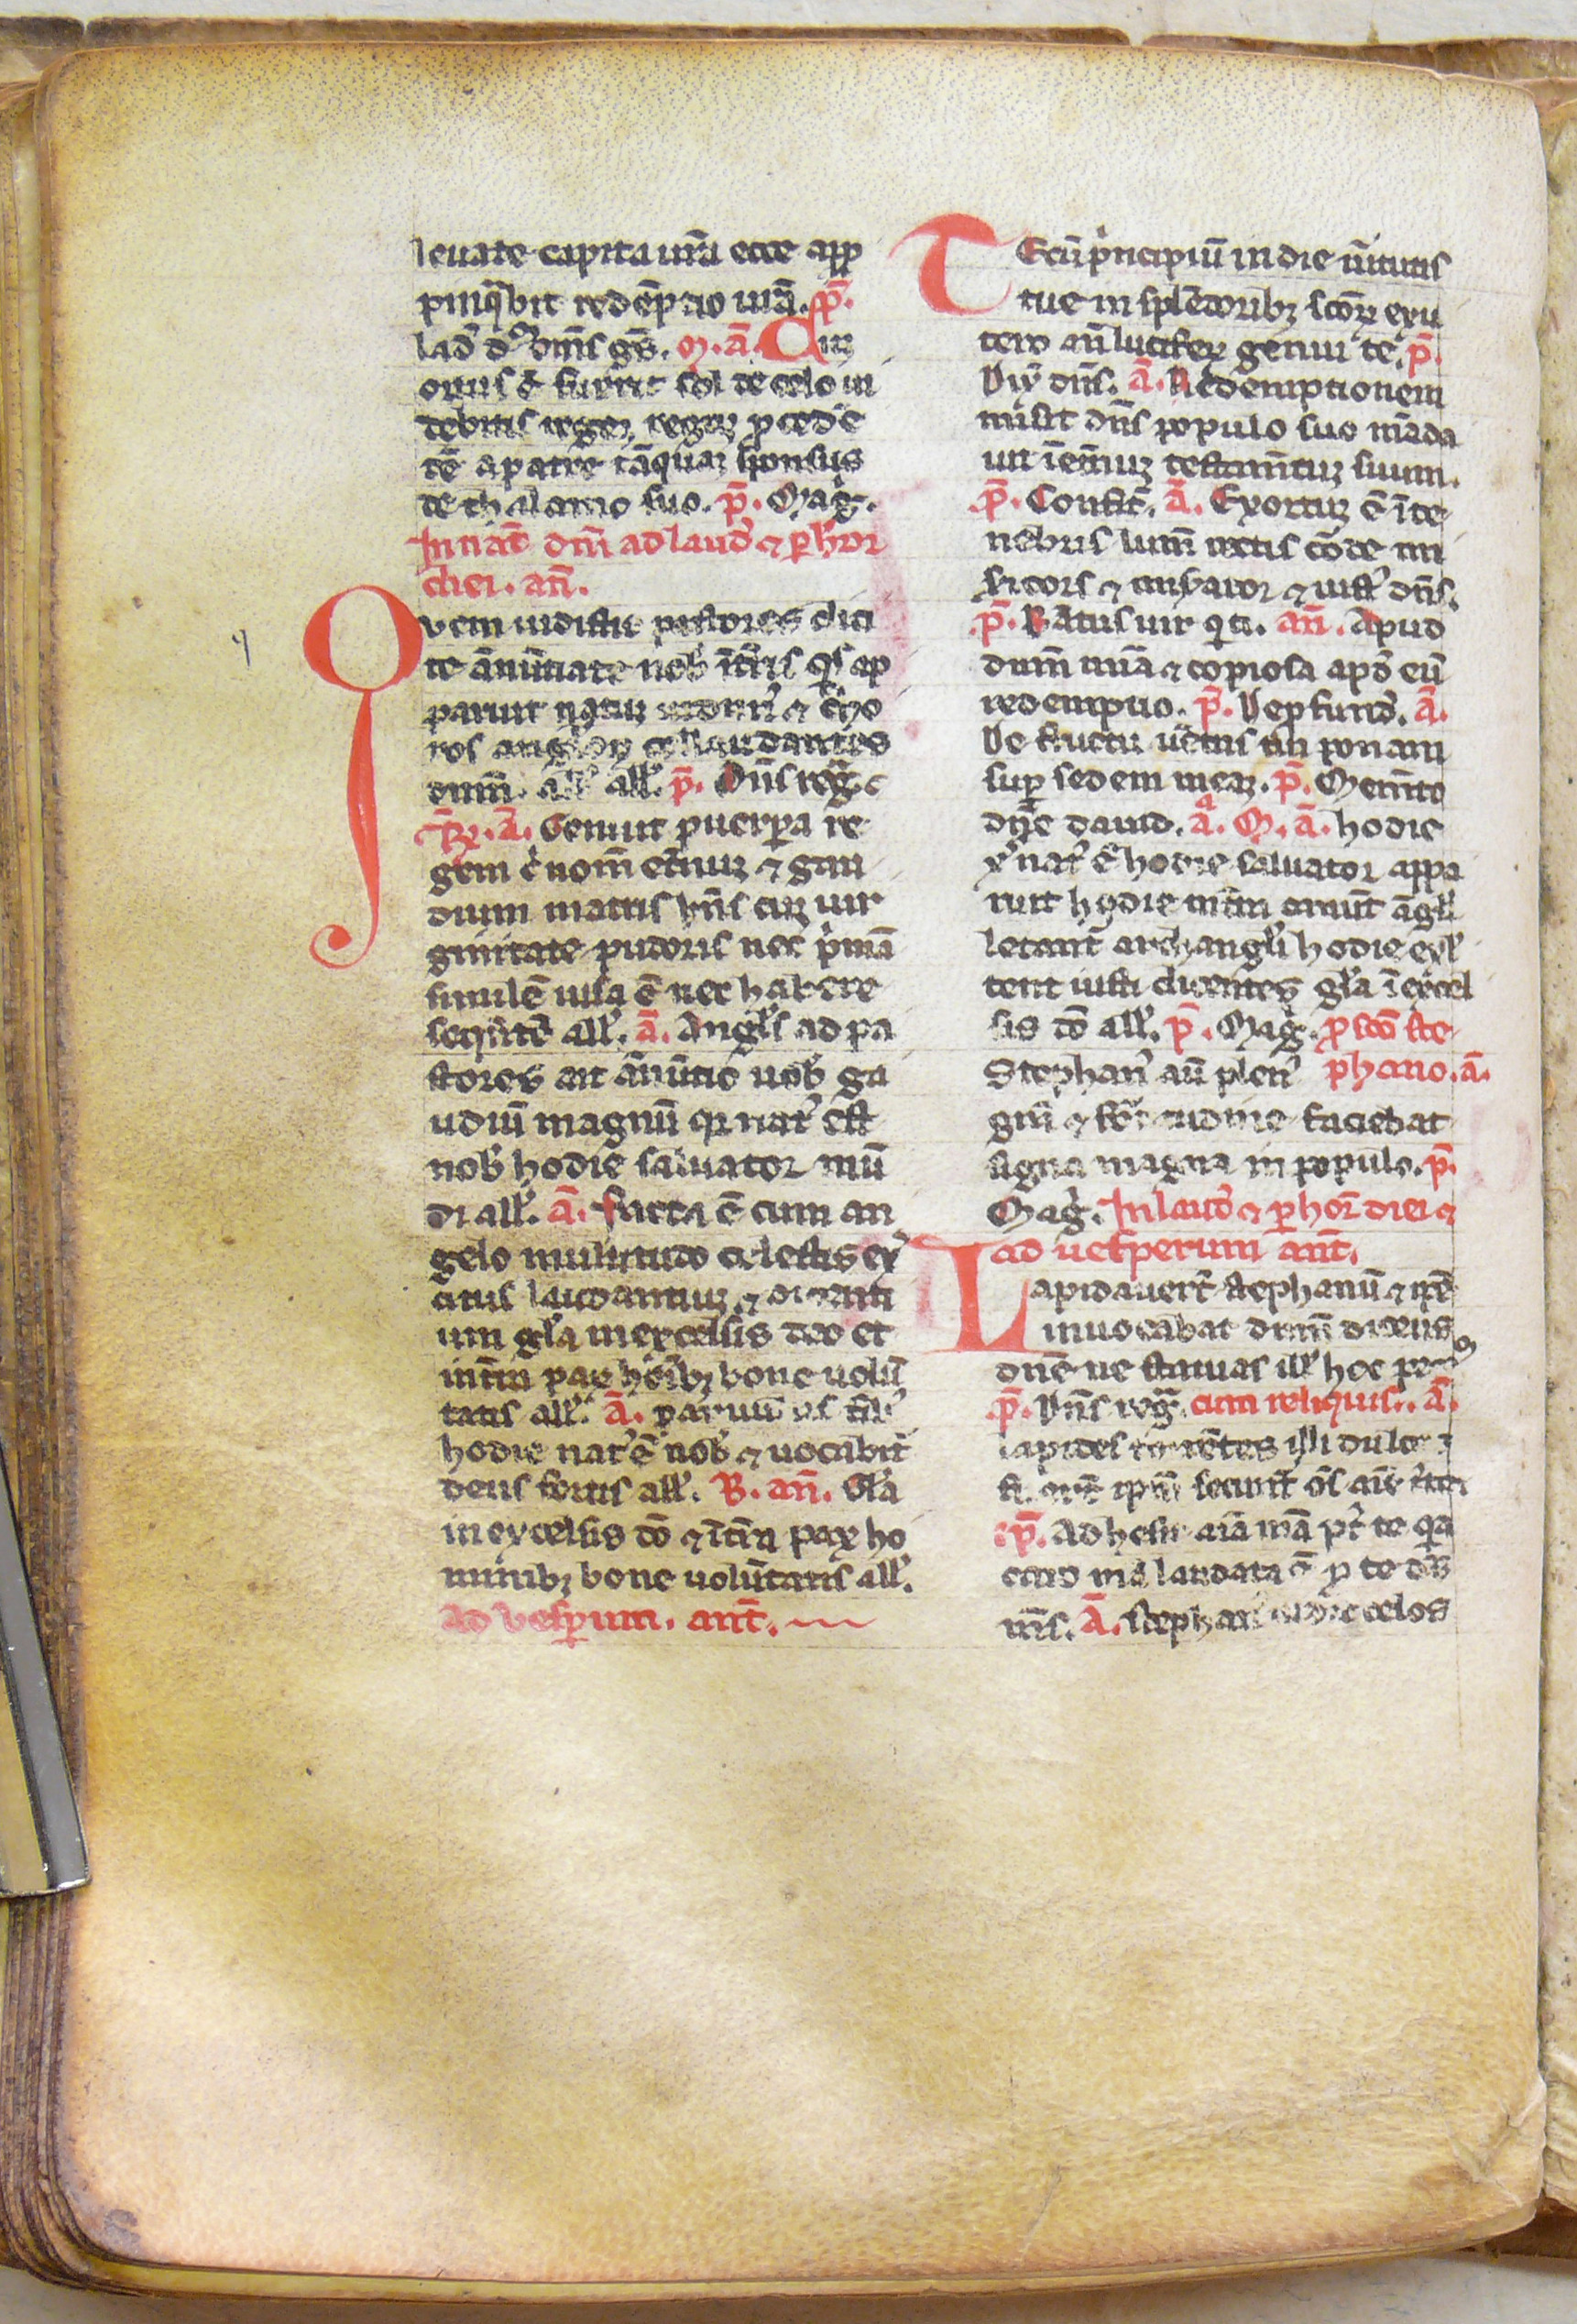 leuate capita ur̄a ecce app
pinq̄bit redēp̄tio ur̄a. p̄.
lad̄ d᷒ om̄s gēs. M. ā. Cuꝫ
ortus fuerit sol de celo ui
debitis regeꝫ reguꝫ ꝓcedē
tē a patre tāquaꝫ sponsus
de thalamo suo. p̄. Mag̉.
In nat̄ dn̄i ad laud̉ ⁊ ꝑ hor̄
diei. an̄.
Quem uidistis pastores dici
te ānūtiate nob̉ ī t̄ris q̉s ap
paruit natuꝫ uidim᷒ ⁊ choros
ros angloꝝ collaudantes
dn̄m. all̉ all̉. p̄. Dn̄s reg̉.
ā. Genuit puerpera re
gem c̉ nom̄ et̄nuꝫ ⁊ gau
dium matris hn̄s cuꝫ uir
ginitate pudoris nec p̉mā
similē uisa ē nec habere
seq̄ntē all̉. ā. Angl̉s ad pa
stores ait ānūtio uob̉ ga
udiū magnū q̉ nat᷒ est
nob̉ hodie saluator mū
di all̉. ā. facta ē cum an
gelo multitudo celestis ex̉
citus laudantiuꝫ ⁊ dicenti
um gl̄a in excelsis deo et
in t̄ra pax hōibꝫ bone uolū
tatis all̉. ā. paruul᷒ fili᷒
hodie nat᷒ ē nob̉ ⁊ uocabit̉
deus fortis all̉. B. an̄. Gl̄a
in excelsis dō ⁊ ī t̄ra pax ho
minibꝫ bone uolūtatis all̉.
Ad vesꝑum. ant̄.
Tecū p̉ncipiū in die ūtutis
tue in splēdoribꝫ sc̄oꝝ ex u
tero an̄ lucifeꝝ genui te. p̄.
Dix̉ dn̄s. ā. Redemptionem
misit dn̄s populo suo māda
uit ī et̄nuꝫ testam̄tuꝫ suum.
p̄. Confit̄. ā. Exortuꝫ ē ī te
nebris lum̄ rectis corde mi
s̉icors ⁊ miserator ⁊ iust᷒ dn̄s.
p̄. Bātus uir q̉ ti. an̄. Apud
dn̄m mīa ⁊ copiosa apd̉ eū
redemptio. p̄. De ꝓfund̉. ā.
De fructu uētris tui ponam
suꝑ sedem meaꝫ. p̄. Mem̄to
dn̄e dauid. ā. M. ā. hodie
x̉ nat᷒ ē hodie saluator appa
ruit hodie in t̄ra canūt āgl̉i
letant̄ archangl̉i hodie exl̉
tent iusti dicentes gl̄a ī excel
sis dō all̉. p̄. Mag̉. ꝓ sc̄o ste
Stephan᷒ aū plen᷒ phano. ā.
gr̄a ⁊ fortitudine faciebat
signa magna in populo. p̄.
Mag̉. In laud̉ ⁊ ꝑ hor̄ diei ⁊
ad uesperum ant̄.
Lapidauert̄ stephanū ⁊ ip̄e
inuocabat dn̄m dicens
dn̄e ne statuas ill̉ hoc
p̄. Dn̄s reg̉. cum reliquis. ā.
lapides torrētes illi dulces
ip̄m secunt̄ ōs aīe
p̄. Adhesit aīa mā p᷒ te q̉a
caro mā lapidata ē ꝓ te d̄s
m̄s. ā. stephan᷒ celos